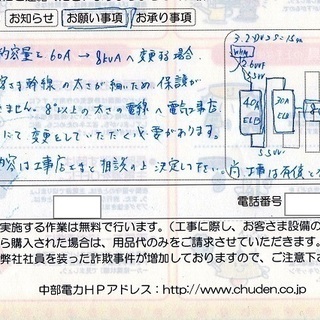 お知らせ お願い事項 お承り事項
約容量を60A→8kVAへ変更する場合、
客さま幹線の太さが細いため保護が
きません。8°以上の太さの電線へ電気工事店
にて変更をしていただく必要があります。
内容は工事店さまと相談の上決定して下さい。
工事は有償と
WHM
40A
ELB
30A
ELB
電話番号
実施する作業は無料で行います。（工事に際し、お客さま設備の
ら購入された場合は、用品代のみをご請求させていただきます。
弊社社員を装った詐欺事件が増加しておりますので、ご注意下さ
中部電力HPアドレス：http://www.chuden.co.jp